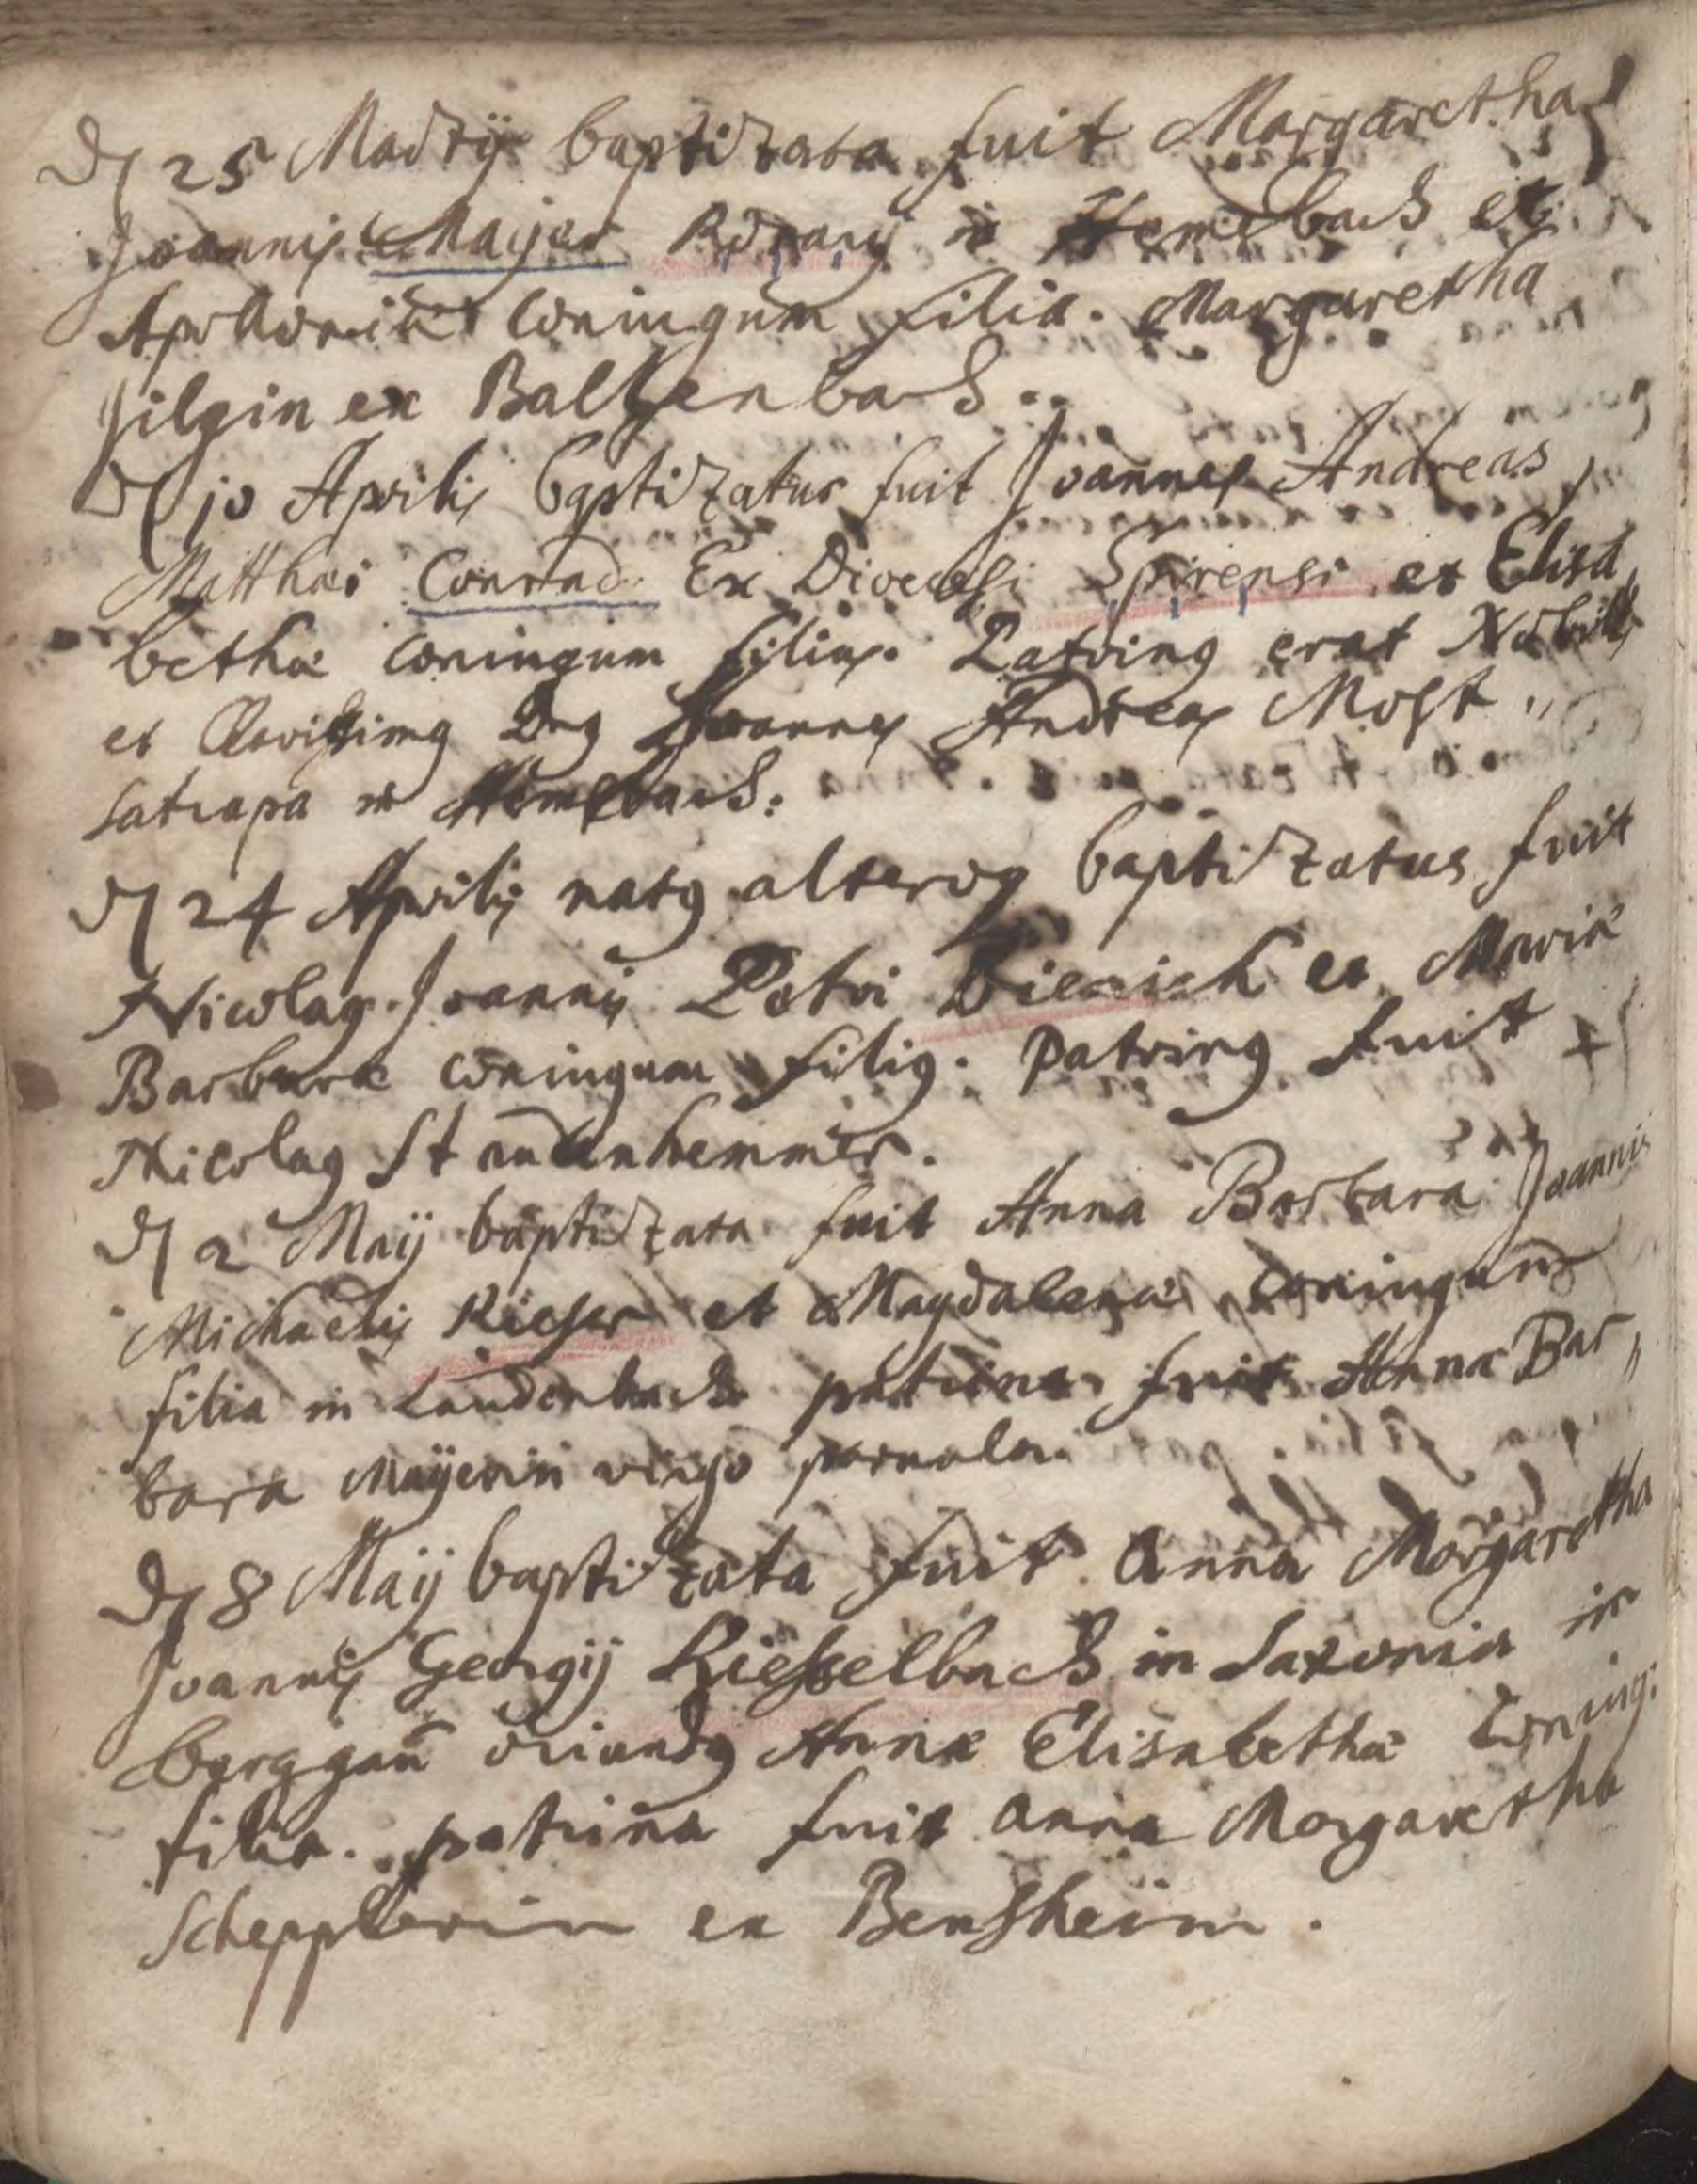 25 Martÿ baptizata fuit Margaretha
Joannis Maijer in Hemsbach et
Apolloniæ coniugum filia. Margaretha
Jilgin ex Baltzenbach.
10 Aprilis baptizatus fuit Joannes Andreas
Matthæi Conrad Ex Dioecesi Spirensi et Elisa„
bethæ coniugum filius. Patrinus erat Nobilis
et Clarissimus Dns Joannes Andreas Most„
satrapa in Hemsbach:
24 Aprilis natus altero baptizatus fuit
Nicolaus. Joannis Petri et Mariæ
Barbaræ coniugum filius. patrinus fuit +
Nicolaus
2 Maij baptizata fuit Anna Barbara Joannis
Michaelis Kieser et Magdalenæ coniugum
filia in Laudenbach patrina fuit Anna Bar„
bara Maÿerin virgo
8 Maij baptizata fuit Anna Margaretha
Joannis Georgij Kiesselbach in Saxonia in
oriundus Annæ Elisabethæ coniug:
filia. patrina fuit anna Margaretha
Schepplerin ex Bensheim.